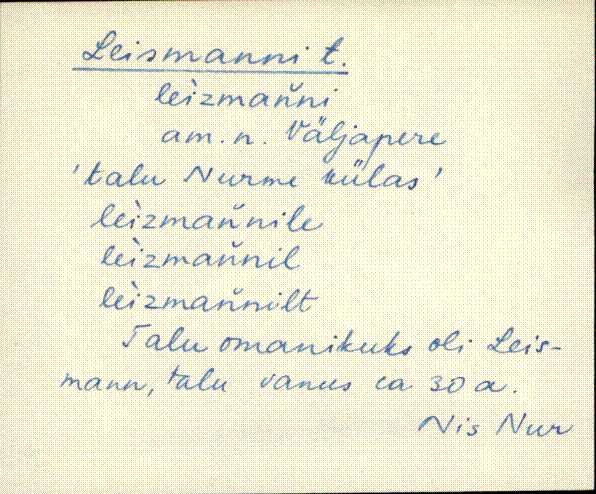 Leismanni t.
leìzmaňni
am. n. Väljapere
'talu Nurme külas'
leìzmaňnile
leìzmaňnil
leìzmaňnilt
Talu omanikuks oli Leis-
mann, talu vanus ca 30 a.
Nis Nur